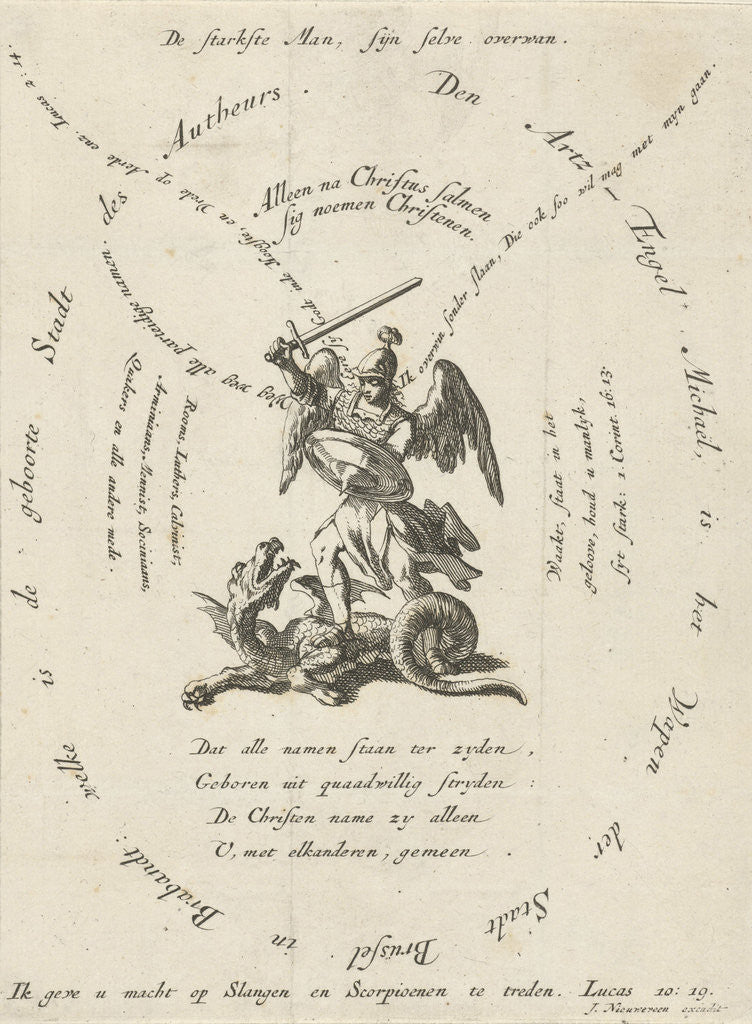 De starkste Man, sijn selve overwan.
Den Artz-Engel Michaël, is het Wapen der Stadt Brüssel in Brabandt: welke is de geboorte Stadt des Autheurs.
Alleen na Christus salmen
sig noemen Christenen.
Eere sy Godt inde Hoogste, en Vrede op Aerde enz. Lucas 2:14.
Ik overwin sonder slaan, Die ook soo wil mag met myn gaan.
Weg weg alle parteidige namen.
Rooms, Luthers, Calvinist,
Arminiaans, Mennist, Sociniaans,
Quakers en alle andere mede.
Waakt, staat in het
geloove, houd u manlyk,
syt stark: 1. Corint. 16:13.
Dat alle namen staan ter zyden,
Geboren uit quaadwillig stryden:
De Christen name zy alleen
U, met elkanderen, gemeen.
Ik geve u macht op Slangen en Scorpioenen te treden. Lucas 10:19.
J. Nieuwereen excudit